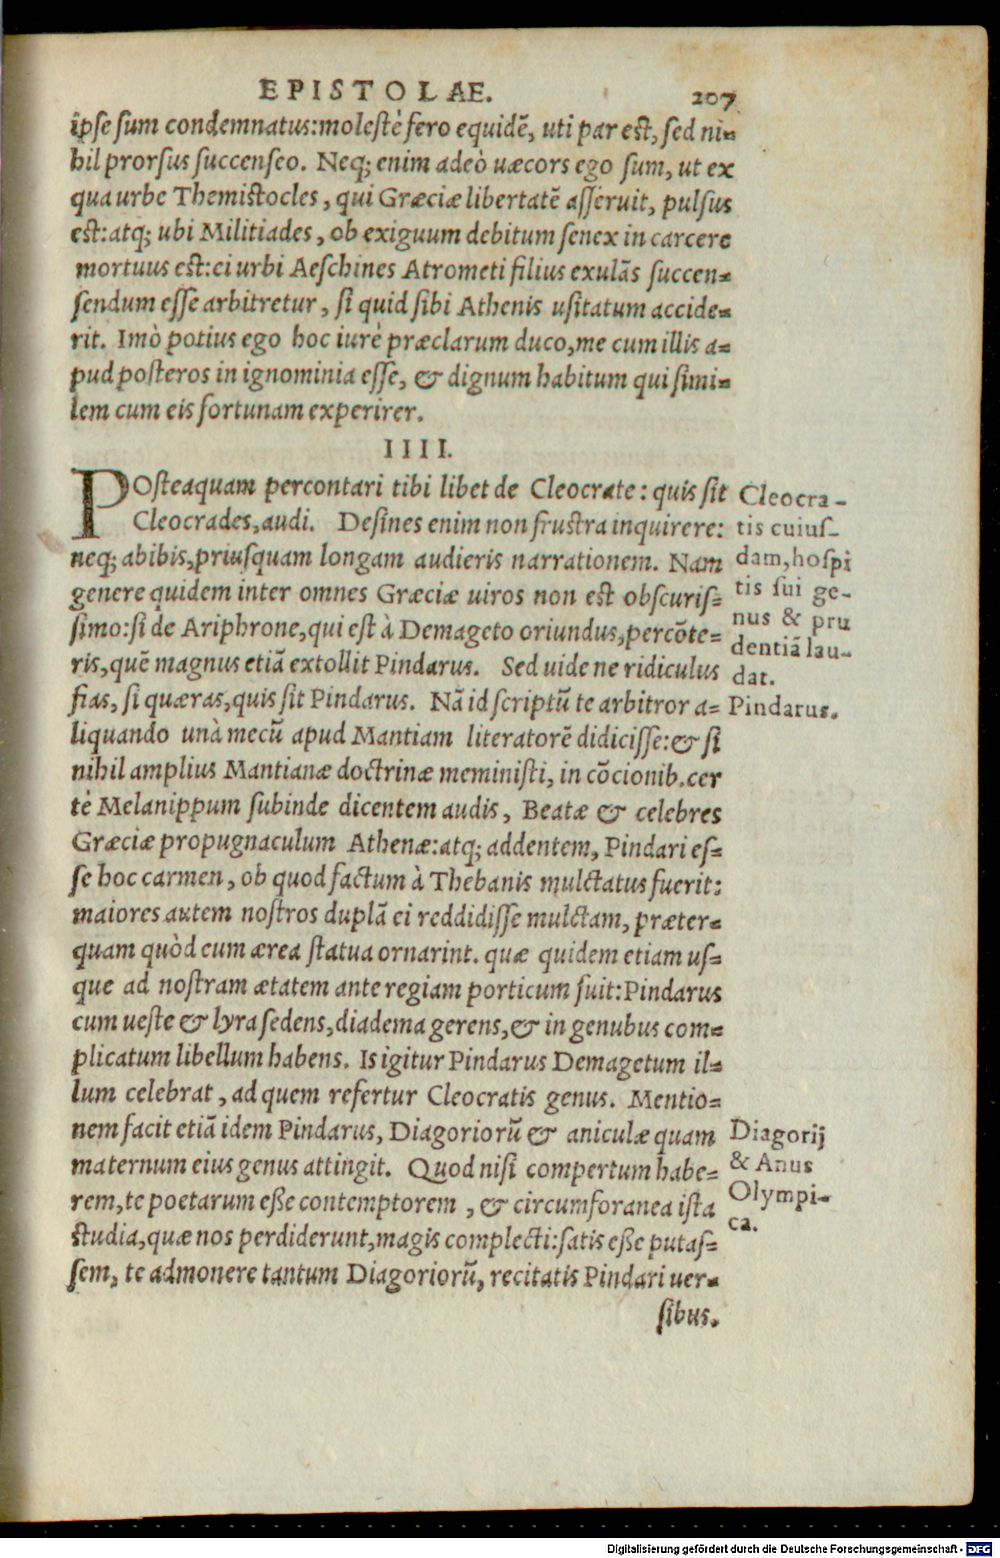 EPISTOLAE. 207
ipse sum condemnatus: molestè fero equidē, uti par est, sed ni-
hil prorsus succenseo. Neq; enim adeò uæcors ego sum, ut ex
qua urbe Themistocles, qui Græciæ libertatē asseruit, pulsus
est: atq; ubi Militiades, ob exiguum debitum senex in carcere
mortuus est: ei urbi Aeschines Atrometi filius exulās succen-
sendum esse arbitretur, si quid sibi Athenis usitatum accide-
rit. Imò potius ego hoc iurè præclarum duco, me cum illis a-
pud posteros in ignominia esse, & dignum habitum qui simi-
lem cum eis fortunam experirer.
IIII.
POsteaquam percontari tibi libet de Cleocrate: quis sit
Cleocrades, audi. Desines enim non frustra inquirere:
neq; abibis, priusquam longam audieris narrationem. Nam
genere quidem inter omnes Græciæ uiros non est obscuris-
simo: si de Ariphrone, qui est à Demageto oriundus, percōte-
ris, quē magnus etiā extollit Pindarus. Sed uide ne ridiculus
fias, si quæras, quis sit Pindarus. Nā id scriptū te arbitror a-
liquando unà mecū apud Mantiam literatorē didicisse: & si
nihil amplius Mantianæ doctrinæ meministi, in cōcionib. cer
tè Melanippum subinde dicentem audis, Beatæ & celebres
Græciæ propugnaculum Athenæ: atq; addentem, Pindari es-
se hoc carmen, ob quod factum à Thebanis mulctatus fuerit:
maiores autem nostros duplā ei reddidisse mulctam, præter-
quam quòd eum ærea statua ornarint. quæ quidem etiam us-
que ad nostram ætatem ante regiam porticum fuit: Pindarus
cum ueste & lyra sedens, diadema gerens, & in genubus com-
plicatum libellum habens. Is igitur Pindarus Demagetum il-
lum celebrat, ad quem refertur Cleocratis genus. Mentio-
nem facit etiā idem Pindarus, Diagoriorū & aniculæ quam
maternum eius genus attingit. Quod nisi compertum habe-
rem, te poetarum eße contemptorem, & circumforanea ista
studia, quæ nos perdiderunt, magis complecti: satis eße putas-
sem, te admonere tantum Diagoriorū, recitatis Pindari uer-
sibus.
Cleocra-
tis cuius-
dam, hospi
tis sui ge-
nus & pru
dentiā lau-
dat.
Pindarus.
Diagorij
& Anus
Olympi-
ca.
Digitalisierung gefördert durch die Deutsche Forschungsgemeinschaft - DFG